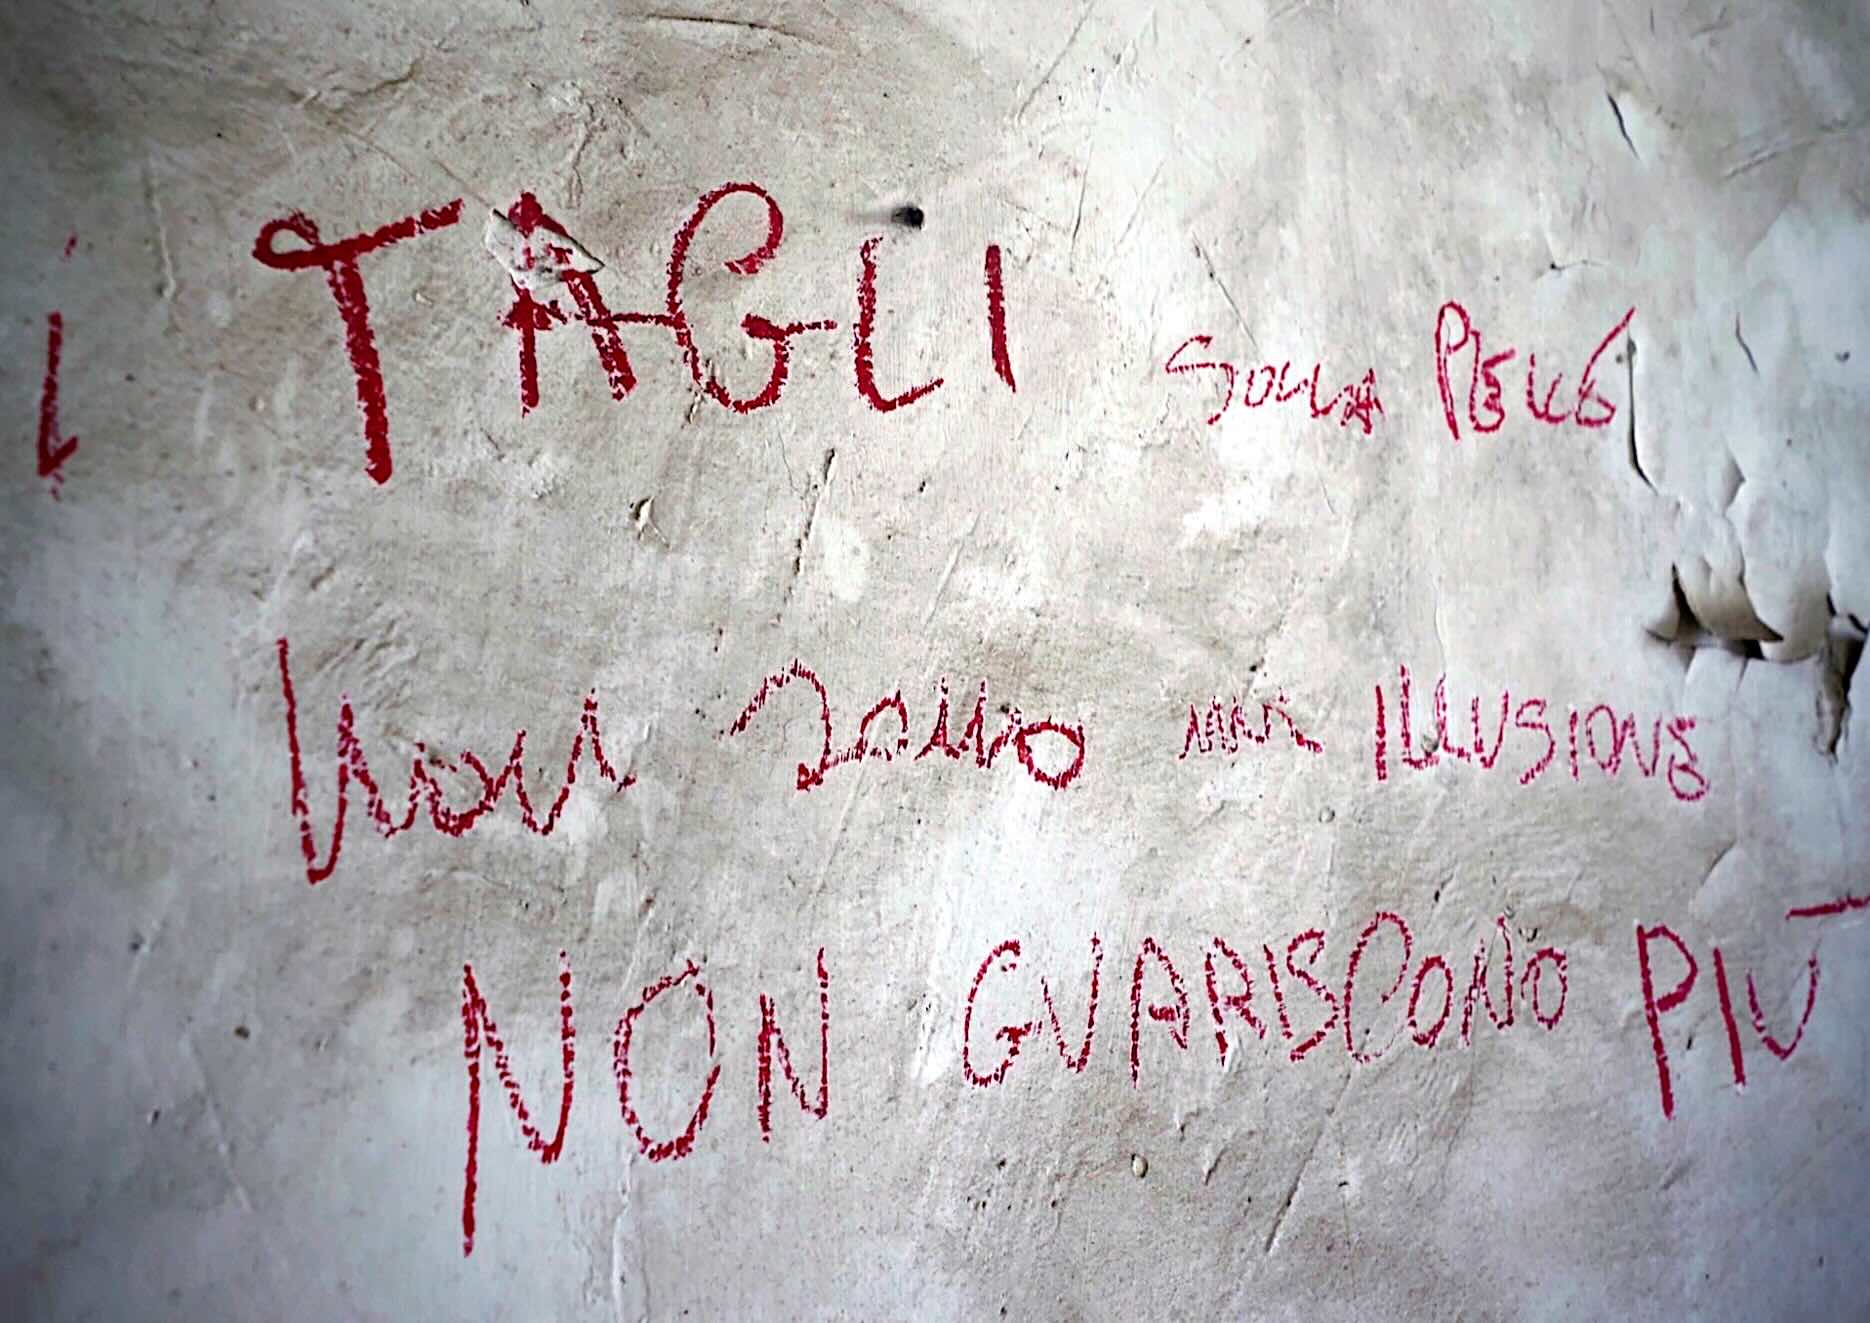 i TAGLI SULLA PELLE
NON SONO UNA ILLUSIONE
NON GUARISCONO PIÙ